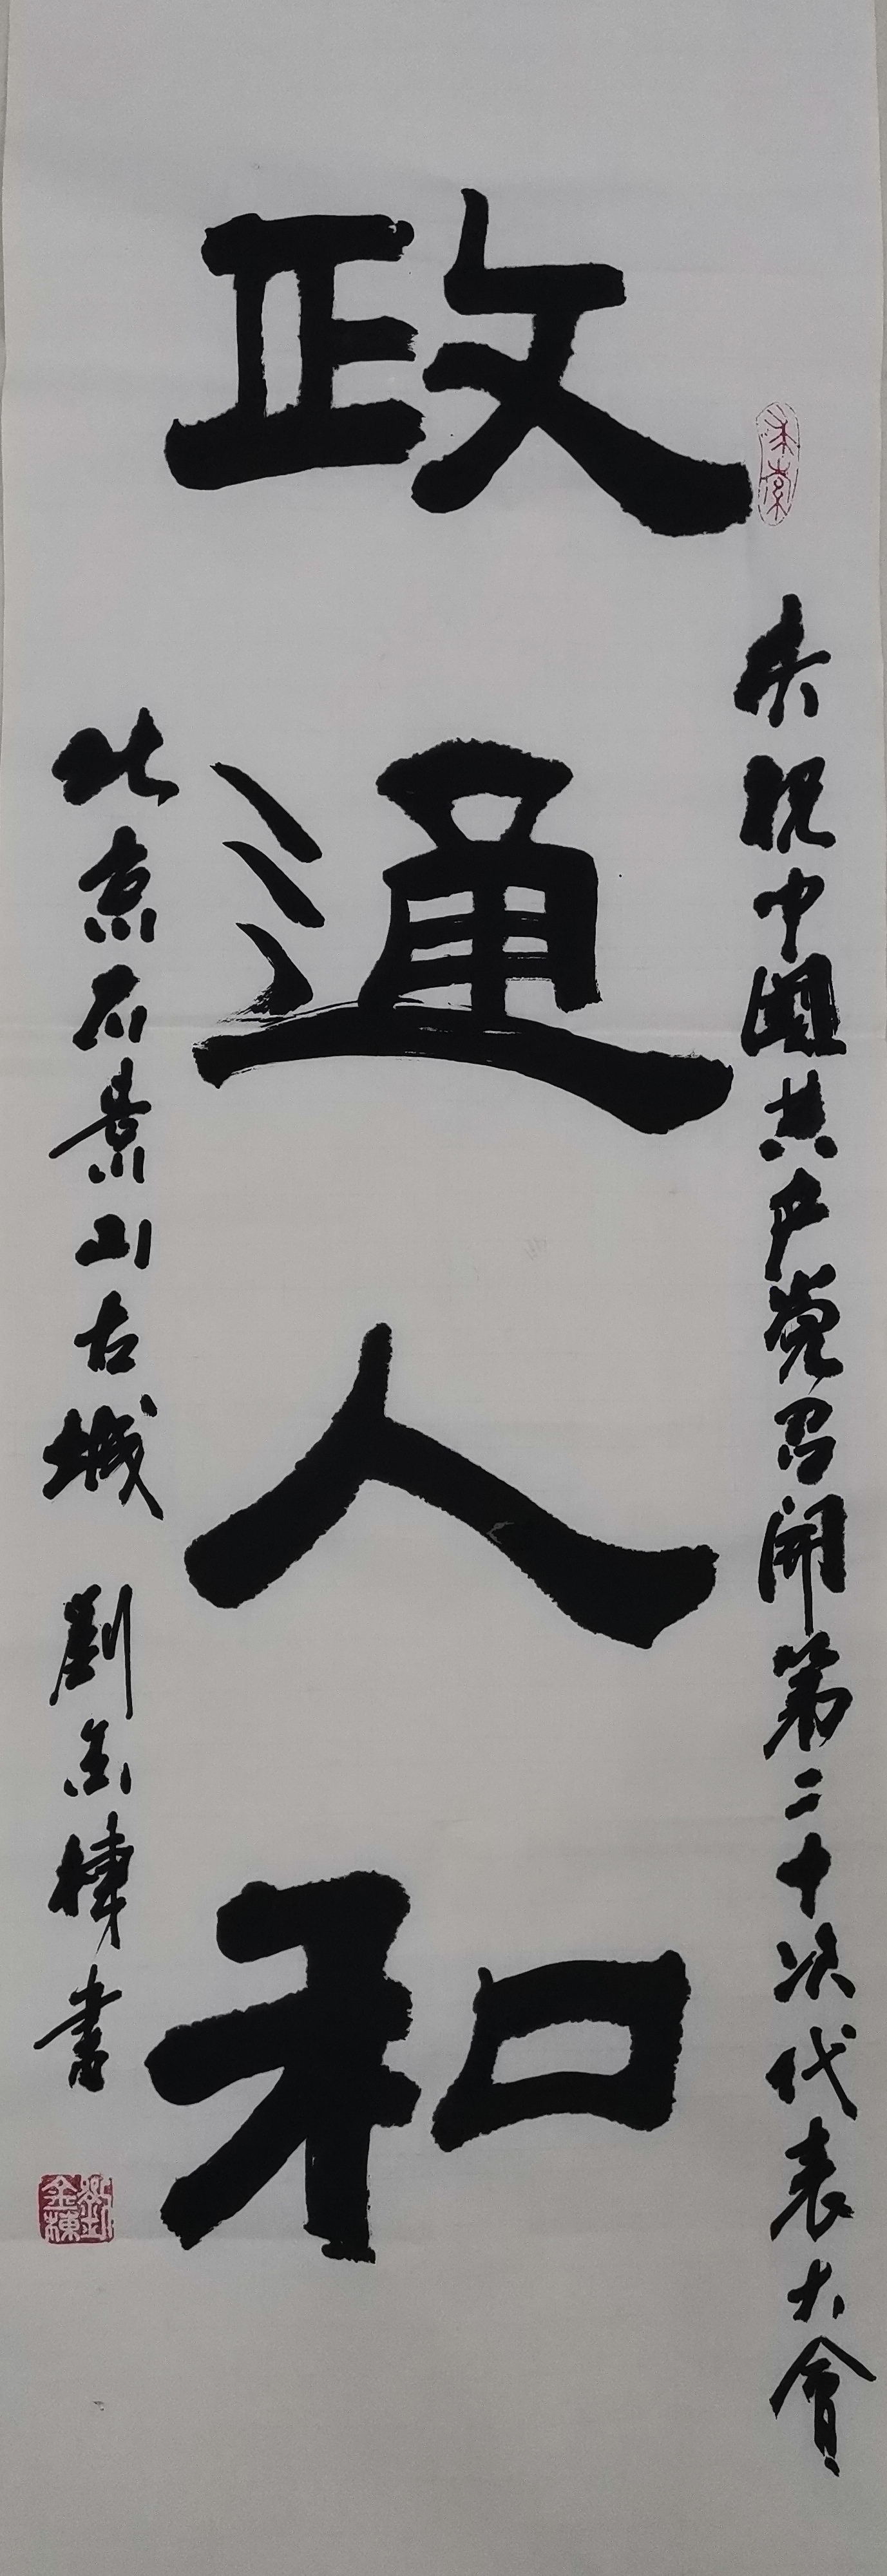 求索
庆祝中國共产党召開第二十次代表大會
政通人和
北京石景山古城 劉金棟書
劉金棟